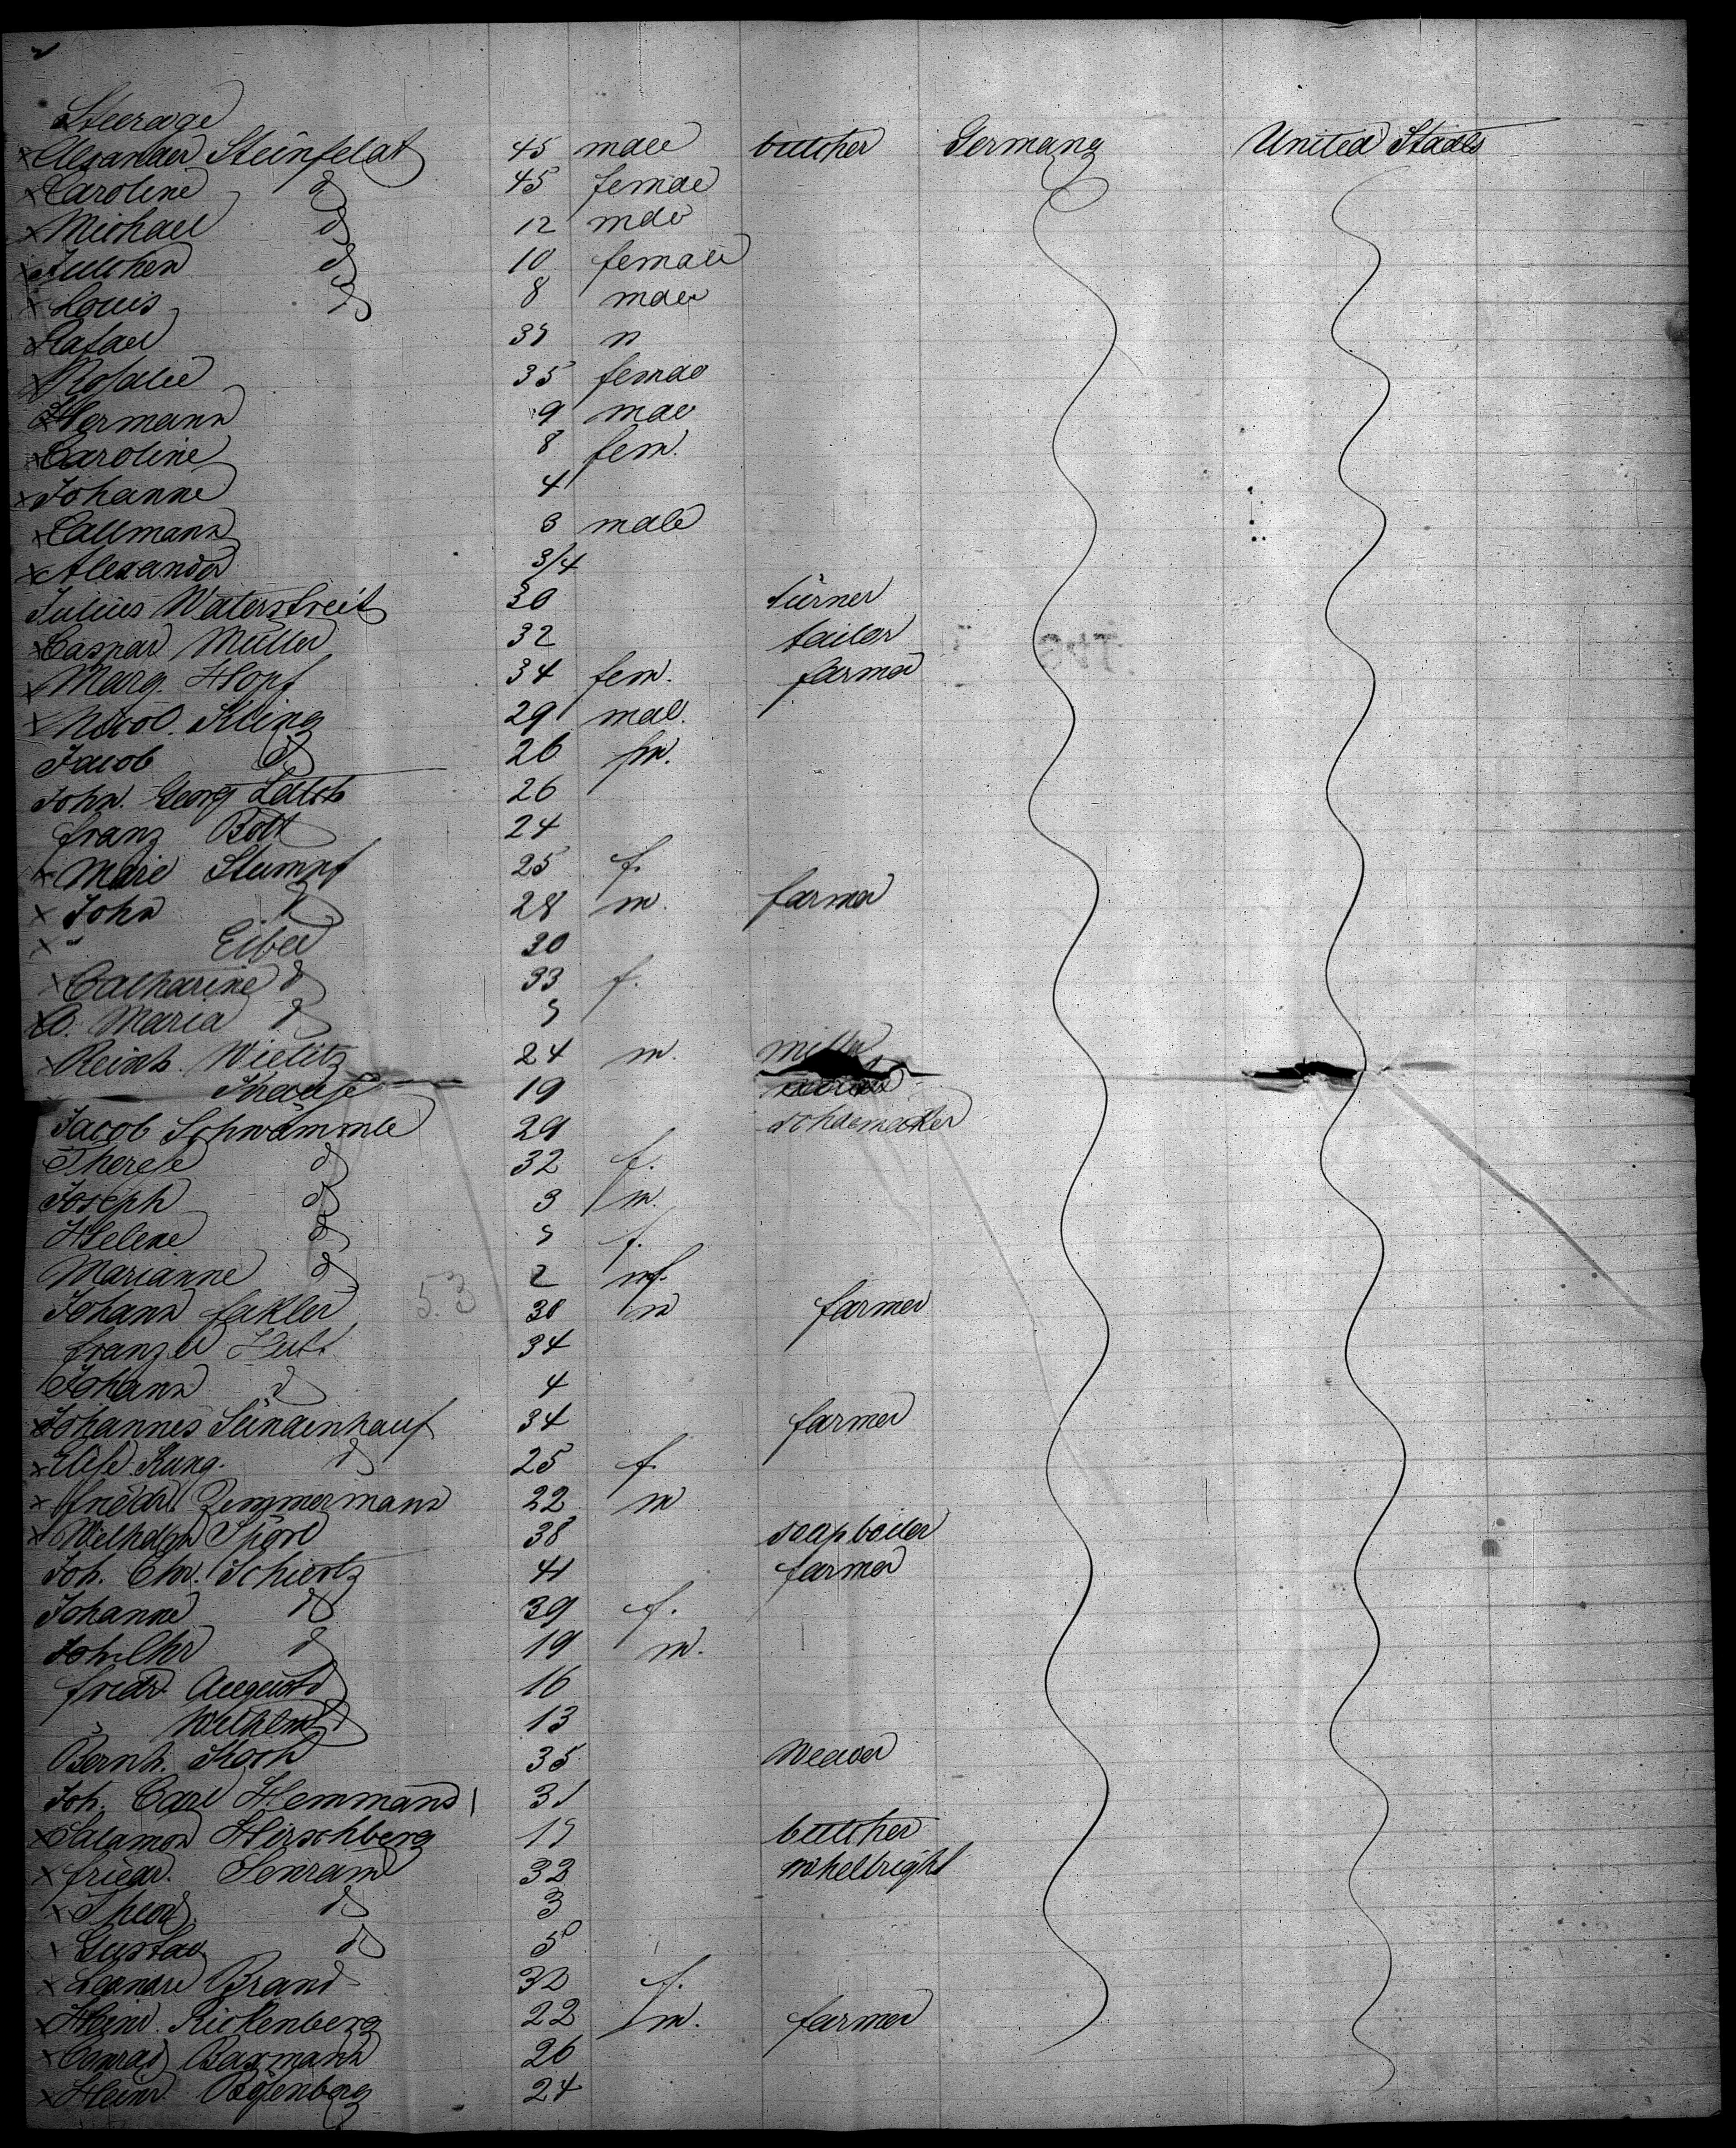 Steerage
x Alexander Steinfeldt 45 male butcher Germany United Staates
x Caroline d 45 female
x Michael d 12 male
x Julchen d 10 female
x Louis d 8 male
x Rafael 35 n
x Rosalie 35 female
x Hermann 9 male
x Caroline 8 fem.
x Johanne 4
x Callmann 3 male
x Alexander 3/4
Julius Waterstreit 30 turner
x Caspar Müller 32 tailor
x Marg. Hopf 34 fem. farmer
x Nicol. Kling 29 mal.
Jacob d 26 fm.
John. Georg 26
Franz Bott 24
x Marie Stumpf 25 f.
x John d 28 m. farmer
x " Eibel 30
x Catharine d 33 f.
x D. Maria d 5
x Reinh. Wielitz 24 m.
Knause 19
Jacob Schwämmle 29 schoemaker
Therese d 32 f.
Joseph d 3 m.
Helene d 5 f.
Marianne d 2 mf.
Johann Fakler 5.3 30 m farmer
Franz 34
Johann d 4
x Johannes 34 farmer
x Elise Kung. d 25 f
x Friedr. Zimmermann 22 m
x Wilhelm 38 soapboiler
Joh. Chr. Schiertz 41 farmer
Johanne d 39 f.
Joh. Chr d 19 m.
Friedr. August d 16
" Wilhelm d 13
Bernh. Koch 35 weaver
Joh. Carl Hemmand 31
x Salamon Hirschberg 17 butcher
x Friedr. 32 whelbright
x Theod. d 3
x Gustav d 5
x Leonore Brand 32 f.
x Heinr. Rickenberg 22 m. farmer
x Conrad Baxmann 26
x Heinr Rosenberg 24